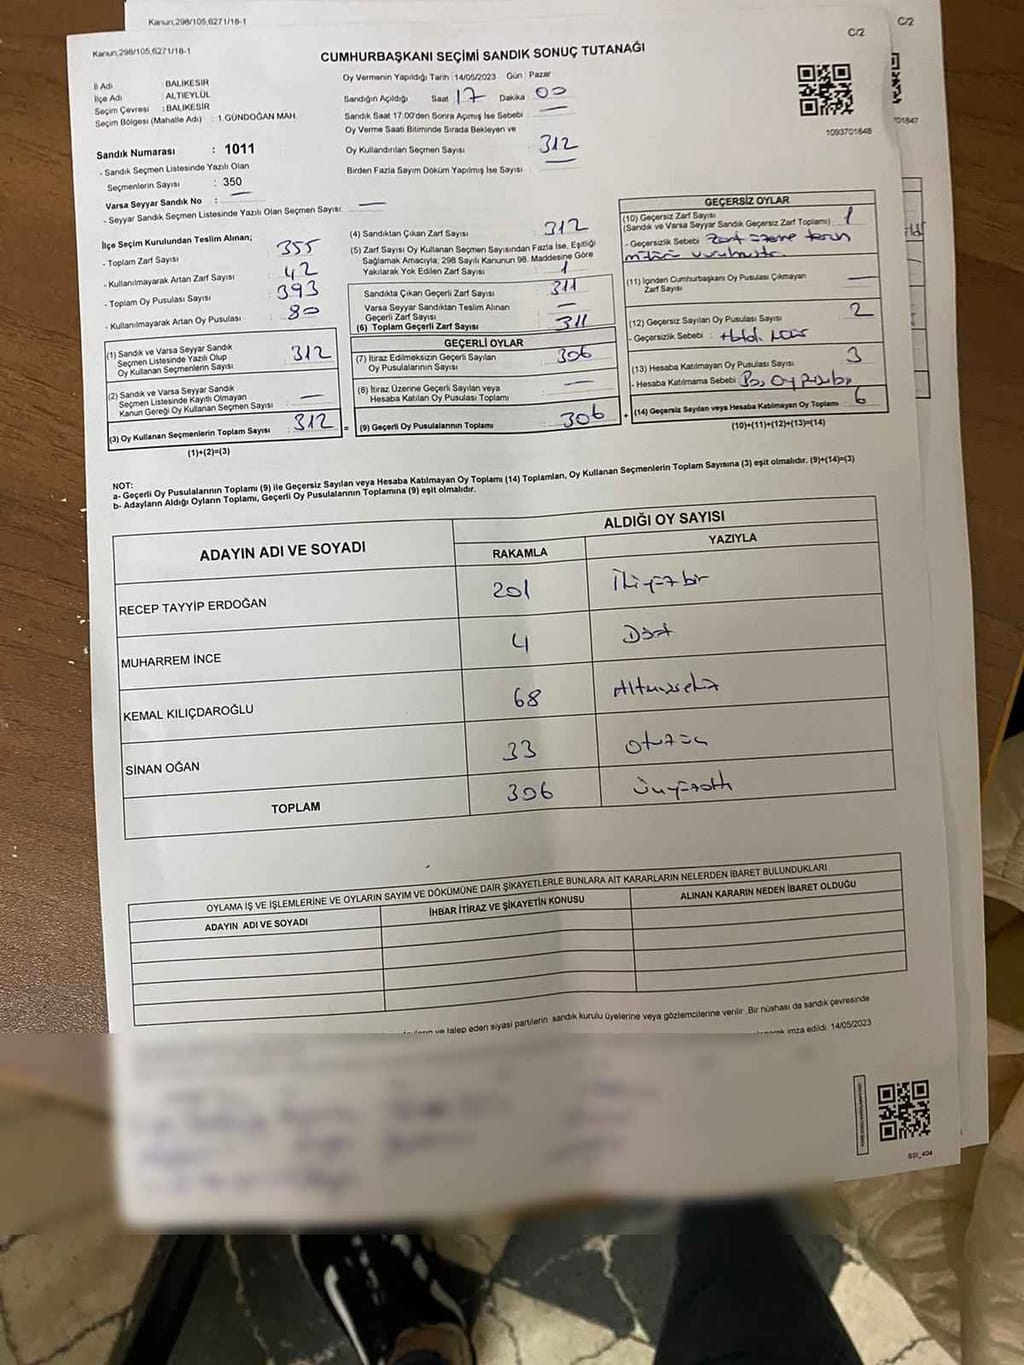 Kanun,298/105,6271/18-1
C/2
Kanun,298/105,6271/18-1
C/2
CUMHURBAŞKANI SEÇİMİ SANDIK SONUÇ TUTANAĞI
İl Adı : BALIKESİR
İlçe Adı : ALTIEYLÜL
Seçim Çevresi : BALIKESİR
Seçim Bölgesi (Mahalle Adı) : 1.GÜNDOĞAN MAH.
Oy Vermenin Yapıldığı Tarih : 14/05/2023 Gün : Pazar
Sandığın Açıldığı Saat 17 Dakika 00
Sandık Saat 17:00'den Sonra Açımış İse Sebebi
Oy Verme Saati Bitiminde Sırada Bekleyen ve
Oy Kullandırılan Seçmen Sayısı : 312
Birden Fazla Sayım Döküm Yapılmış İse Sayısı :
1093701848
01847
Sandık Numarası : 1011
- Sandık Seçmen Listesinde Yazılı Olan
Seçmenlerin Sayısı : 350
Varsa Seyyar Sandık No :
- Seyyar Sandık Seçmen Listesinde Yazılı Olan Seçmen Sayısı:
İlçe Seçim Kurulundan Teslim Alınan;
- Toplam Zarf Sayısı 355
- Kullanılmayarak Artan Zarf Sayısı 42
- Toplam Oy Pusulası Sayısı 393
- Kullanılmayarak Artan Oy Pusulası 80
(1) Sandık ve Varsa Seyyar Sandık
Seçmen Listesinde Yazılı Olup
Oy Kullanan Seçmenlerin Sayısı : 312
(2) Sandık ve Varsa Seyyar Sandık
Seçmen Listesinde Kayıtlı Olmayan
Kanun Gereği Oy Kullanan Seçmen Sayısı :
(3) Oy Kullanan Seçmenlerin Toplam Sayısı : 312 =
(1)+(2)=(3)
(4) Sandıktan Çıkan Zarf Sayısı 312
(5) Zarf Sayısı Oy Kullanan Seçmen Sayısından Fazla İse, Eşitliği
Sağlamak Amacıyla, 298 Sayılı Kanunun 98. Maddesine Göre
Yakılarak Yok Edilen Zarf Sayısı : 1
Sandıkta Çıkan Geçerli Zarf Sayısı 311
Varsa Seyyar Sandıktan Teslim Alınan
Geçerli Zarf Sayısı
(6) Toplam Geçerli Zarf Sayısı 311
GEÇERLİ OYLAR
(7) İtiraz Edilmeksizin Geçerli Sayılan
Oy Pusulalarının Sayısı : 306
(8) İtiraz Üzerine Geçerli Sayılan veya
Hesaba Katılan Oy Pusulaları Toplamı :
(9) Geçerli Oy Pusulalarının Toplamı : 306 +
GEÇERSİZ OYLAR
(10) Geçersiz Zarf Sayısı
(Sandık ve Varsa Seyyar Sandık Geçersiz Zarf Toplamı) 1
- Geçersizlik Sebebi : Zarf üzerine tercih
mührü vurulmuştur.
(11) İçinden Cumhurbaşkanı Oy Pusulası Çıkmayan
Zarf Sayısı
(12) Geçersiz Sayılan Oy Pusulası Sayısı 2
- Geçersizlik Sebebi :
(13) Hesaba Katılmayan Oy Pusulası Sayısı 3
- Hesaba Katılmama Sebebi Boş Oy Pusulası
(14) Geçersiz Sayılan veya Hesaba Katılmayan Oy Toplamı 6
(10)+(11)+(12)+(13)=(14)
NOT:
a- Geçerli Oy Pusulalarının Toplamı (9) ile Geçersiz Sayılan veya Hesaba Katılmayan Oy Toplamı (14) Toplamları, Oy Kullanan Seçmenlerin Toplam Sayısına (3) eşit olmalıdır. (9)+(14)=(3)
b- Adayların Aldığı Oyların Toplamı, Geçerli Oy Pusulalarının Toplamına (9) eşit olmalıdır.
ADAYIN ADI VE SOYADI
ALDIĞI OY SAYISI
RAKAMLA YAZIYLA
RECEP TAYYİP ERDOĞAN 201 İkiyüzbir
MUHARREM İNCE 4 Dört
KEMAL KILIÇDAROĞLU 68 Altmışsekiz
SİNAN OĞAN 33 otuzüç
TOPLAM 306 üçyüzaltı
OYLAMA İŞ VE İŞLEMLERİNE VE OYLARIN SAYIM VE DÖKÜMÜNE DAİR ŞİKAYETLERLE BUNLARA AİT KARARLARIN NELERDEN İBARET BULUNDUKLARI
ADAYIN ADI VE SOYADI İHBAR İTİRAZ VE ŞİKAYETİN KONUSU ALINAN KARARIN NEDEN İBARET OLDUĞU
ve talep eden siyasi partilerin sandık kurulu üyelerine veya gözlemcilerine verilir. Bir nüshası da sandık çevresinde
imza edildi. 14/05/2023
SSI_404